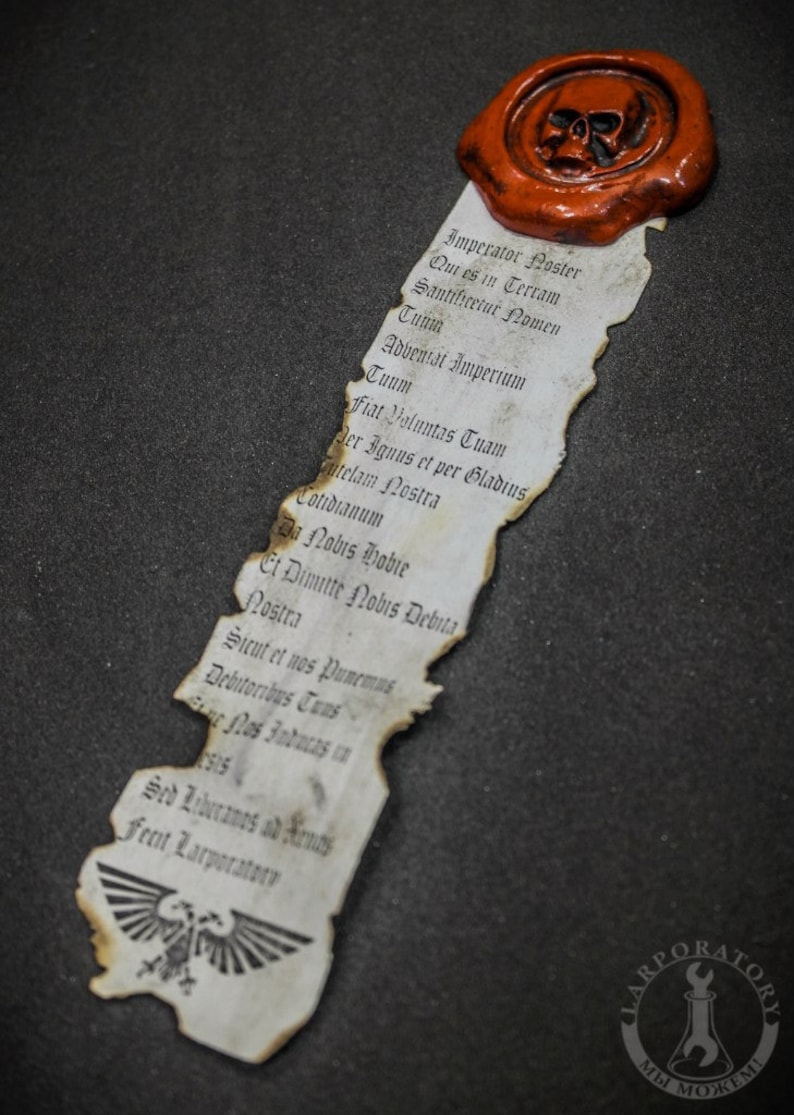 Imperator Noster
Qui es in Terram
Santificetur Nomen
Tuum
Adveniat Imperium
Tuum
Fiat Voluntas Tuam
Per Ignus et per Gladius
Tutelam Nostra
Cotidianum
Da Nobis Hobie
Et Dimitte Nobis Debita
Nostra
Sicut et nos Punemus
Debitoribus Tuus
Nos Inducas in
Sed Liberanos ad Xenos
Fecit Larporatory
LARPORATORY
МЫ МОЖЕМ!